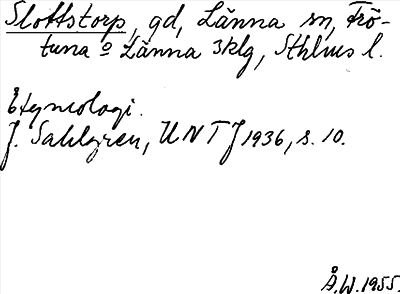 Slottstorp, gd, Länna sn, Frö-
tuna o Länna sklg, Sthlms l.
Etymologi.
J. Sahlgren, UNT J 1936, s. 10.
Å.W. 1955.